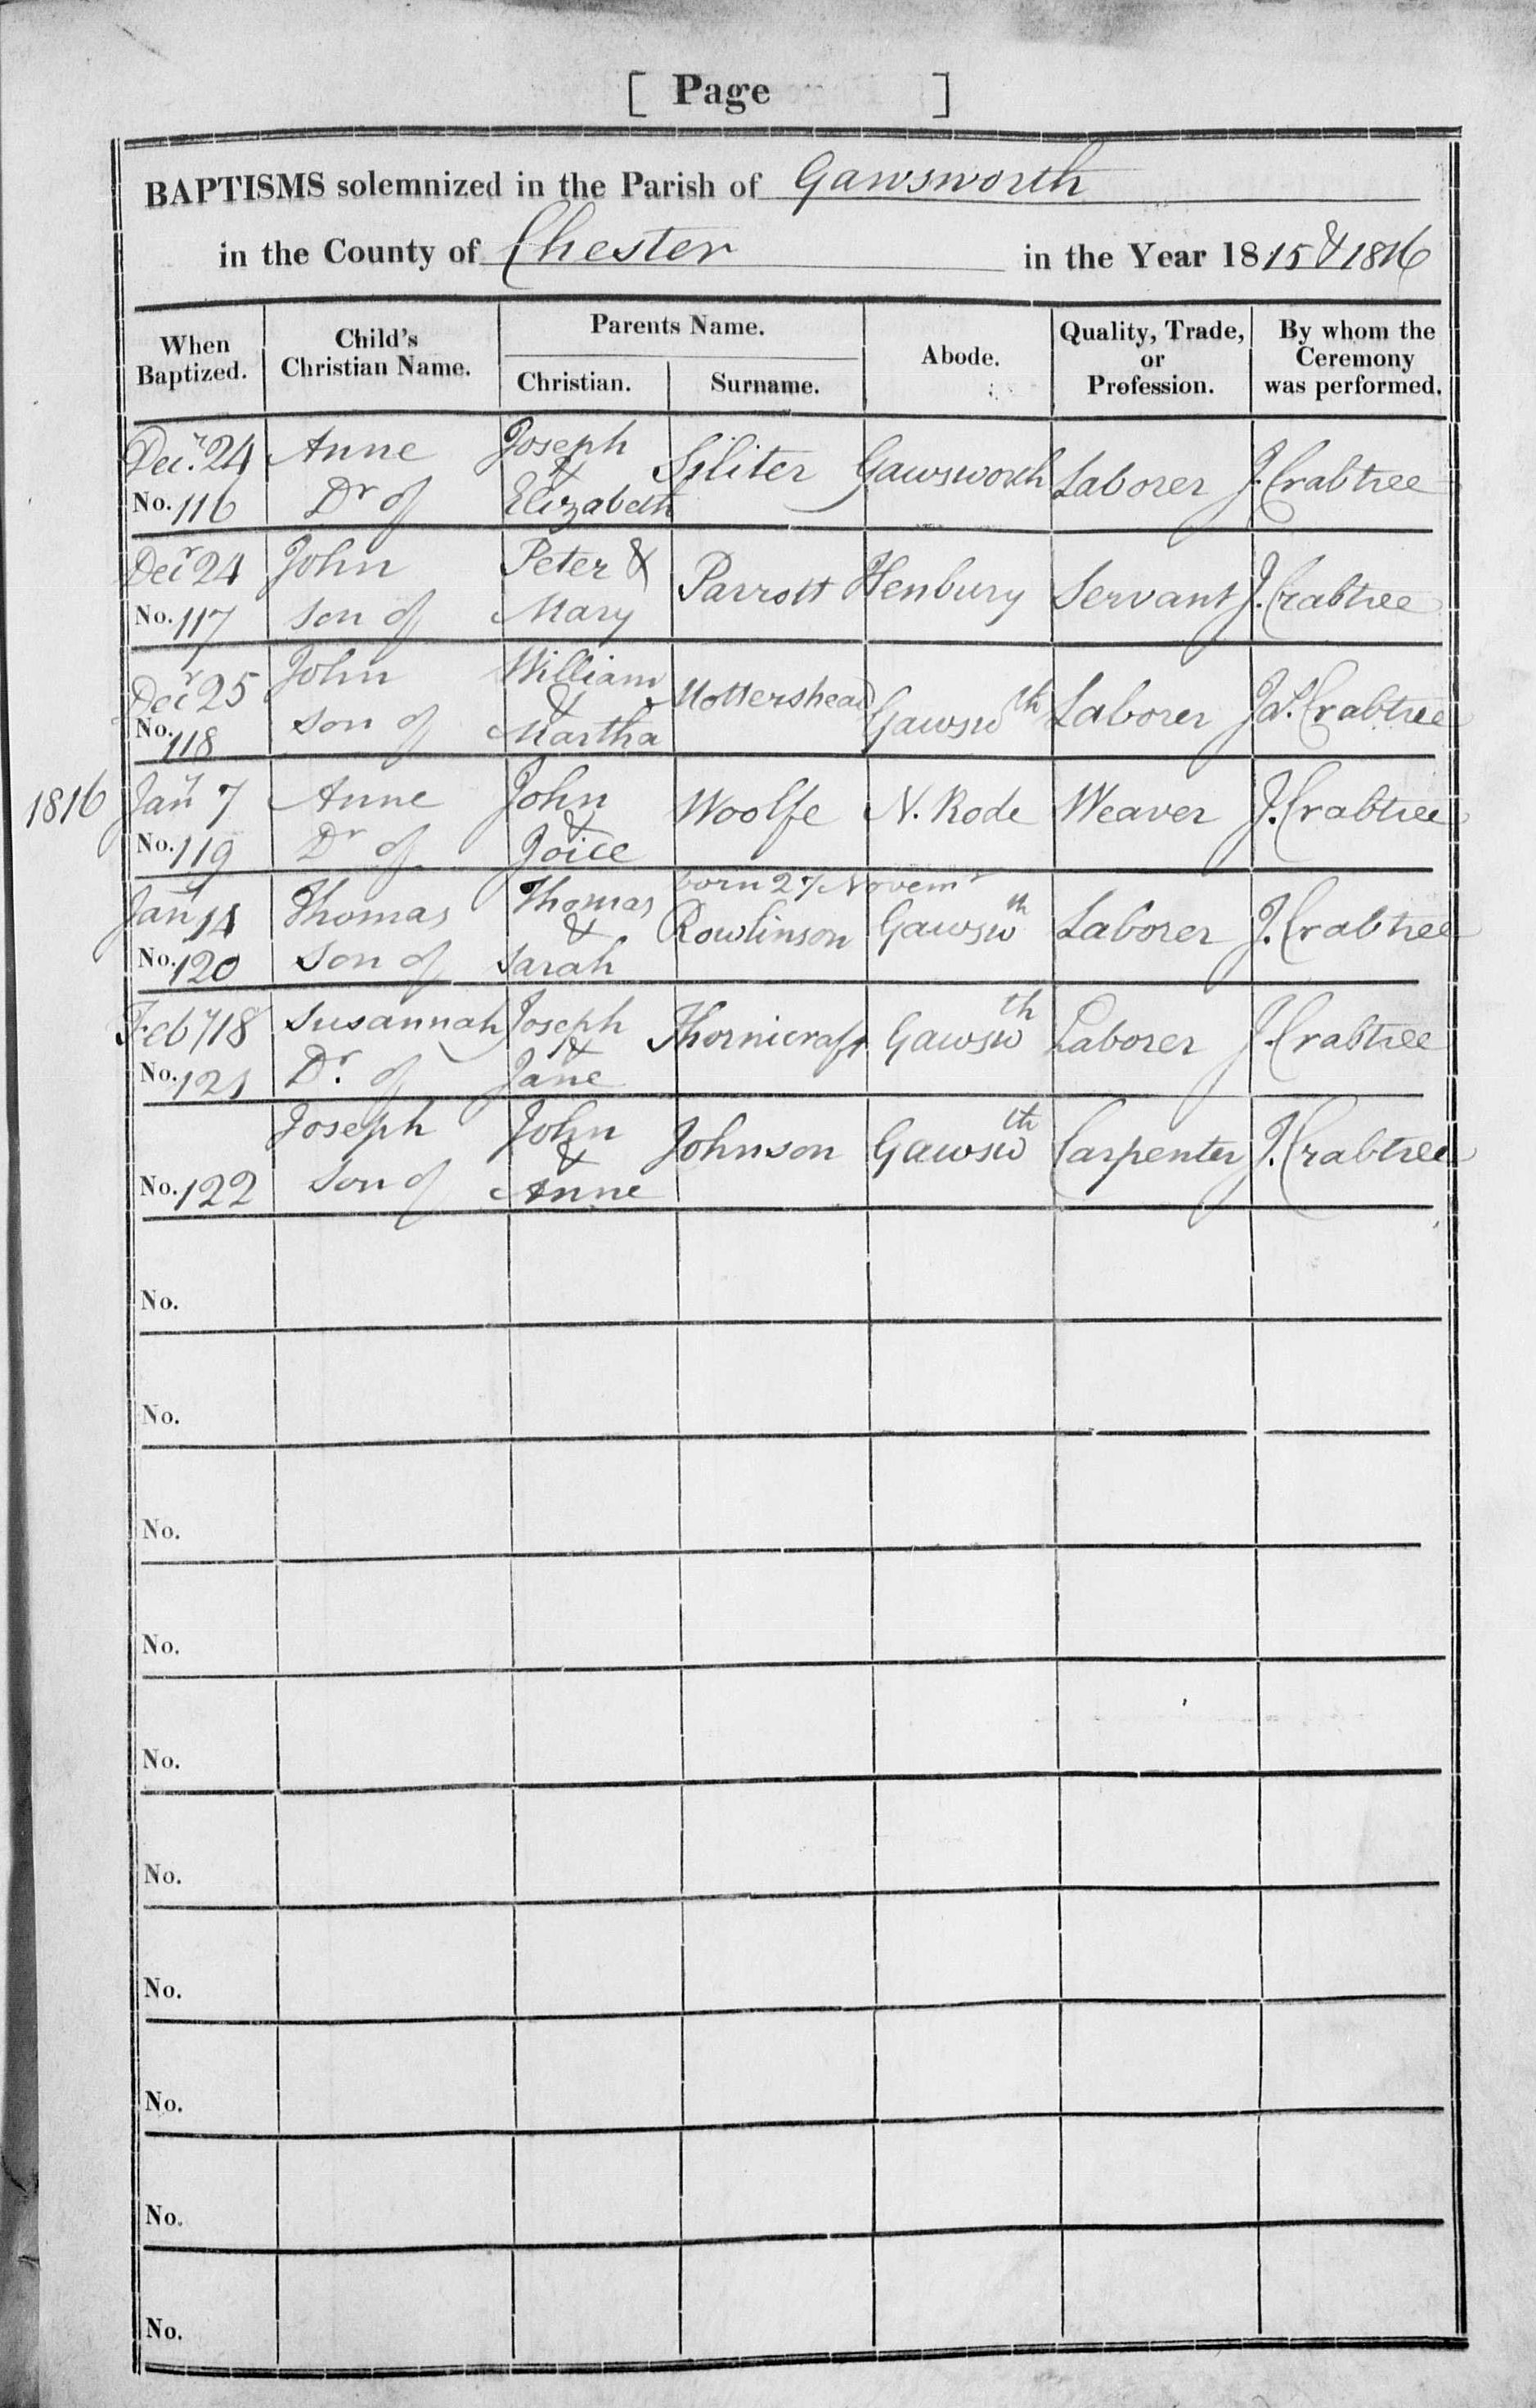 [ Page ]
BAPTISMS solemnized in the Parish of Gawsworth
in the County of Chester in the Year 1815 & 1816
When Baptized. Child's Christian Name. Parents Name. Christian. Surname. Abode. Quality, Trade, or Profession. By whom the Ceremony was performed.
Decr. 24 Anne Joseph & Siliter Gawsworth Laborer J. Crabtree
No. 116 Dr of Elizabeth
Decr 24 John Peter & Parrott Henbury Servant J. Crabtree
No. 117 son of Mary
Decr 25 John William & Mottershead Gawswth Laborer Js. Crabtree
No. 118 son of Martha
1816 Jany 7 Anne John & Woolfe N. Rode Weaver J. Crabtree
No. 119 Dr of Joice
born 27 Novemr
Jany 14 Thomas Thomas & Rowlinson Gawswth Laborer J. Crabtree
No. 120 Son of Sarah
Feby 18 Susannah Joseph & Thornicraft Gawswth Laborer J. Crabtree
No. 121 Dr. of Jane
Joseph John & Johnson Gawswth Carpenter J. Crabtree
No. 122 Son of Anne
No.
No.
No.
No.
No.
No.
No.
No.
No.
No.